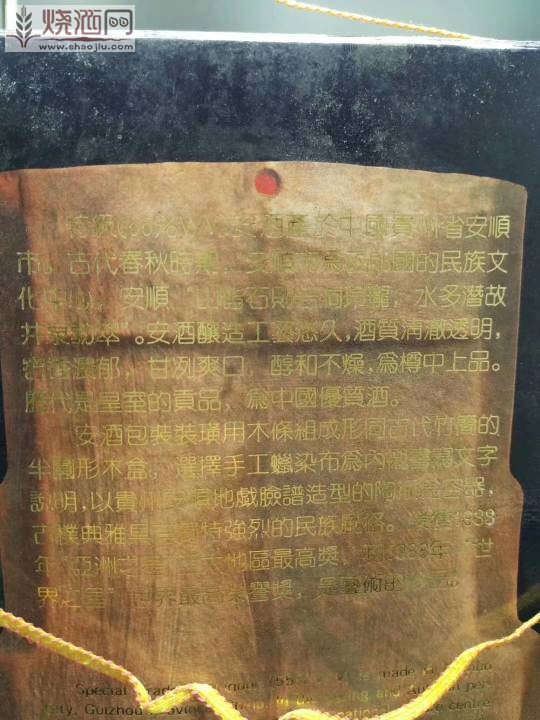 烧酒网
www.shaojiu.com
特級(55%V/V)安酒產於中國貴州省安順
市。古代春秋時期，安順市爲 國的民族文
化中心。安順 山 石則 ，水多潛故
井泉勁萃"。安酒釀造工藝悠久，酒質清澈透明，
窖香濃郁，甘列爽口，醇和不燥，爲樽中上品。
歷代是皇室的貢品，爲中國優質酒。
安酒包裝裝璜用木條組成形同古代竹簡的
半圓形木盒，選擇手工蠟染布爲內 文字
說明，以貴州安順地戲臉譜造型的陶瓶 容器，
古樸典雅具有獨特強烈的民族風格。 1988
年"亞洲之星" 太地區最高獎， 1988年"世
界之星"世界最高榮譽獎，是藝術的
Special Grade liquor (55% V/V) is made in
City, Guizhou Province. and Autumn per
centre